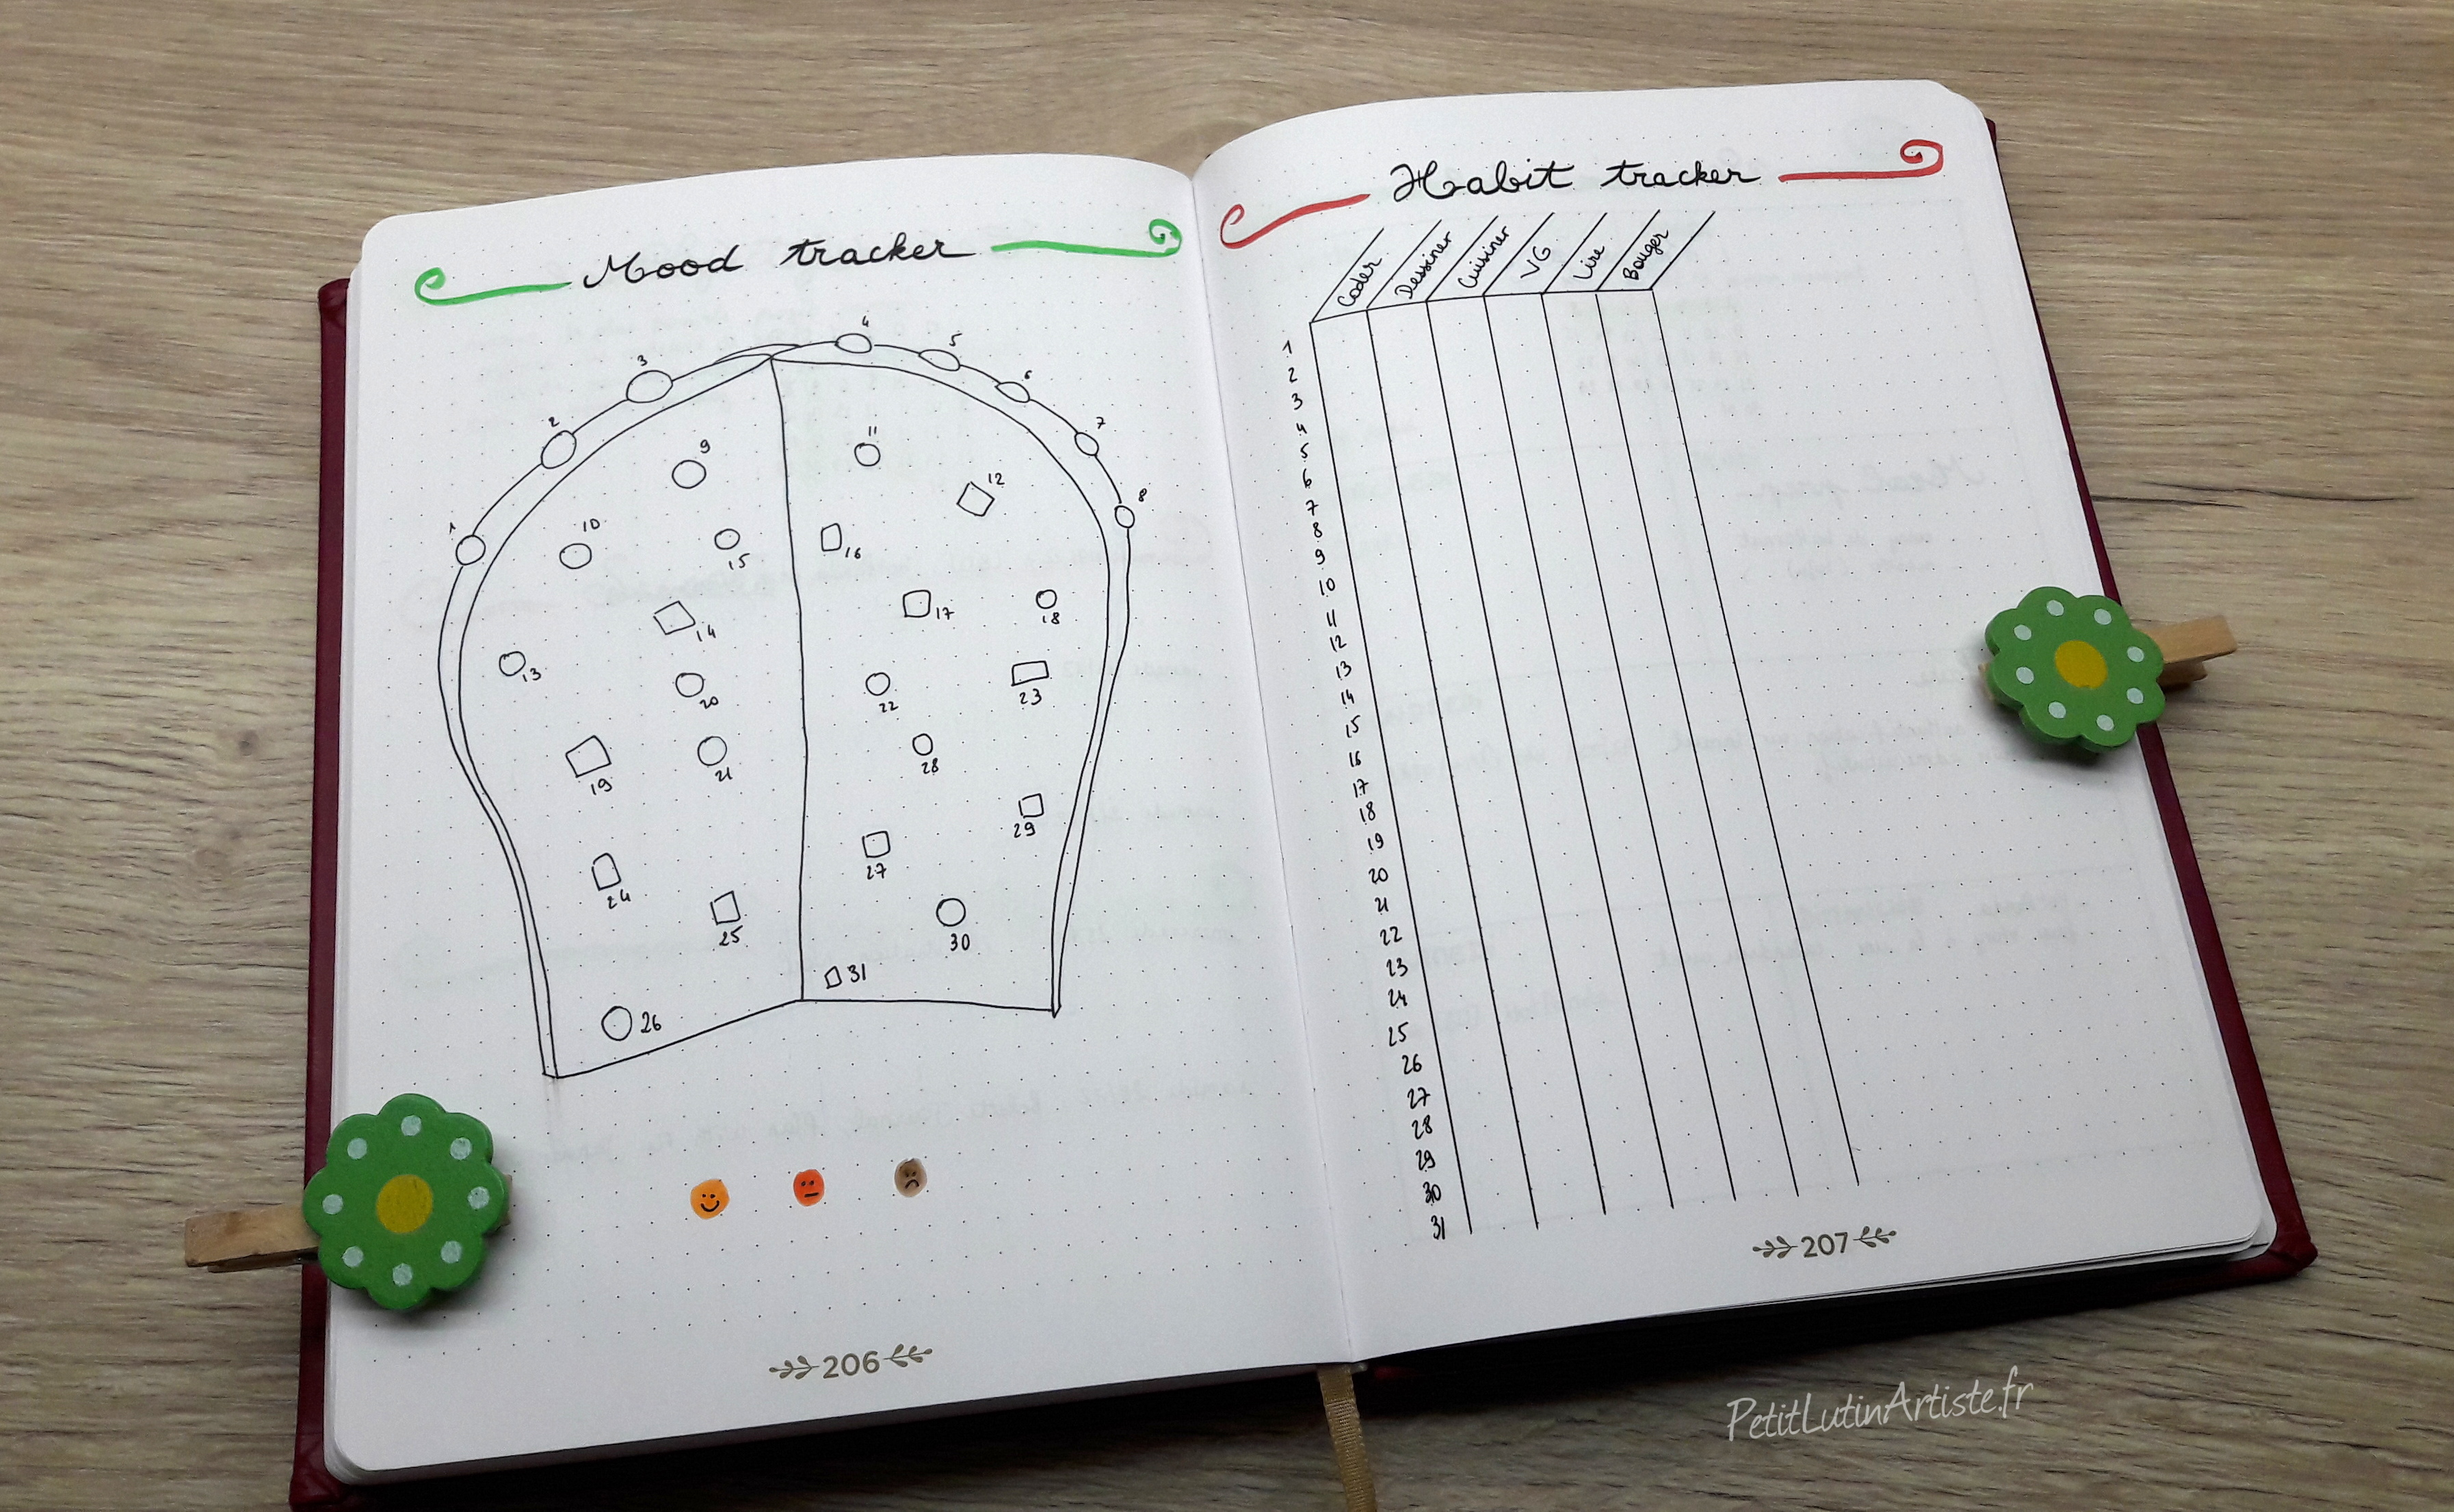 Mood tracker
1
2
3
4
5
6
7
8
9
10
11
12
13
14
15
16
17
18
19
20
21
22
23
24
25
26
27
28
29
30
31
206
Habit tracker
Coder Dessiner Cuisiner VG Lire Bouger
1
2
3
4
5
6
7
8
9
10
11
12
13
14
15
16
17
18
19
20
21
22
23
24
25
26
27
28
29
30
31
207
PetitLutinArtiste.fr